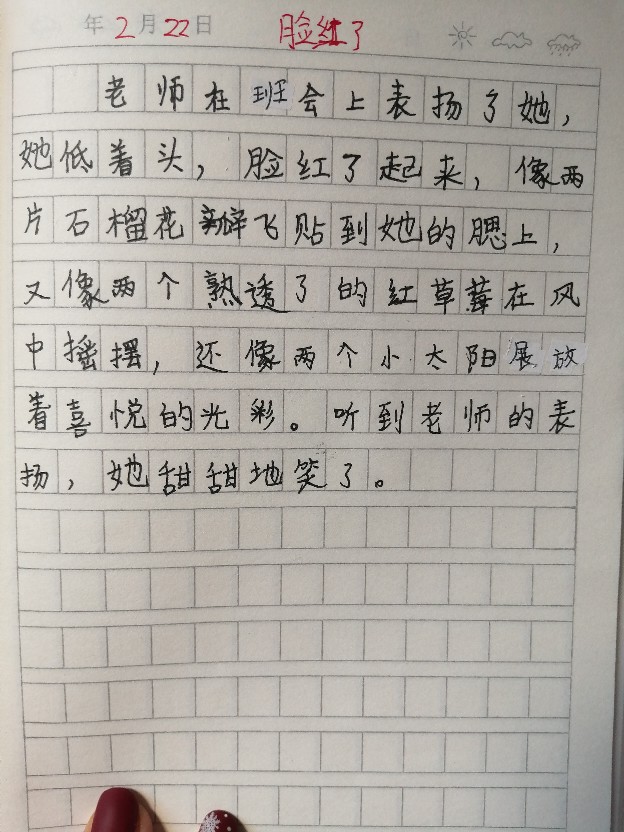 年2月22日 脸红了
老师在班会上表扬了她，
她低着头，脸红了起来，像两
片石榴花瓣飞贴到她的腮上，
又像两个熟透了的红草莓在风
中摇摆，还像两个小太阳展放
着喜悦的光彩。听到老师的表
扬，她甜甜地笑了。